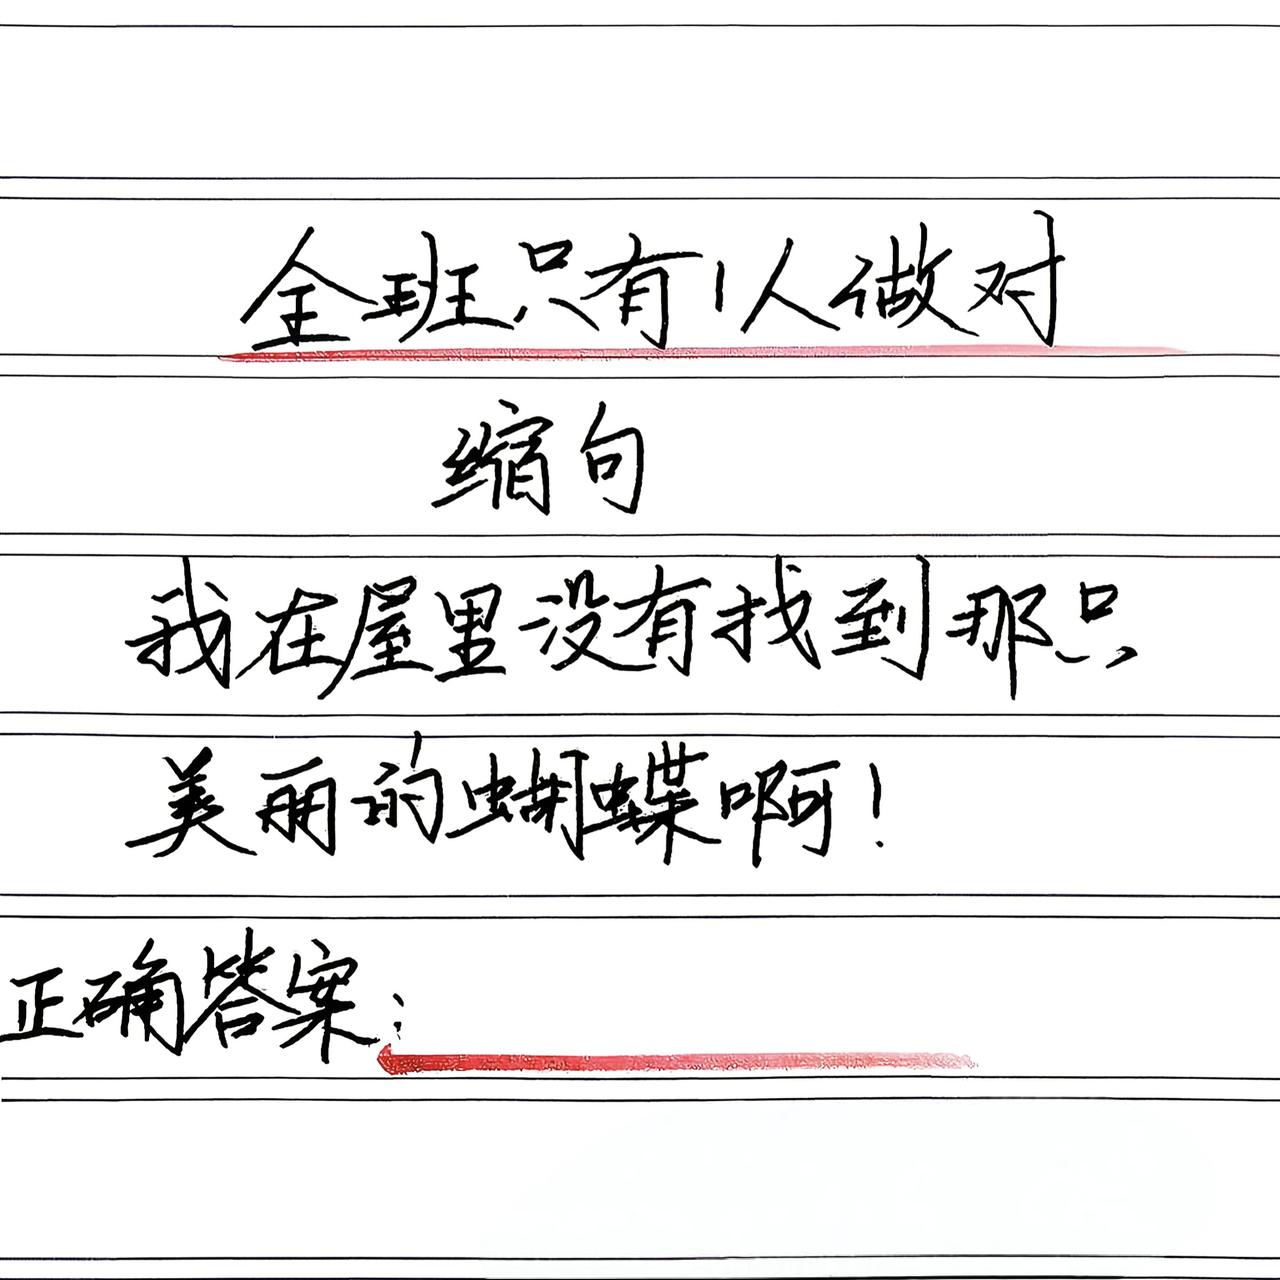 全班只有1人做对
缩句
我在屋里没有找到那只
美丽的蝴蝶啊！
正确答案：